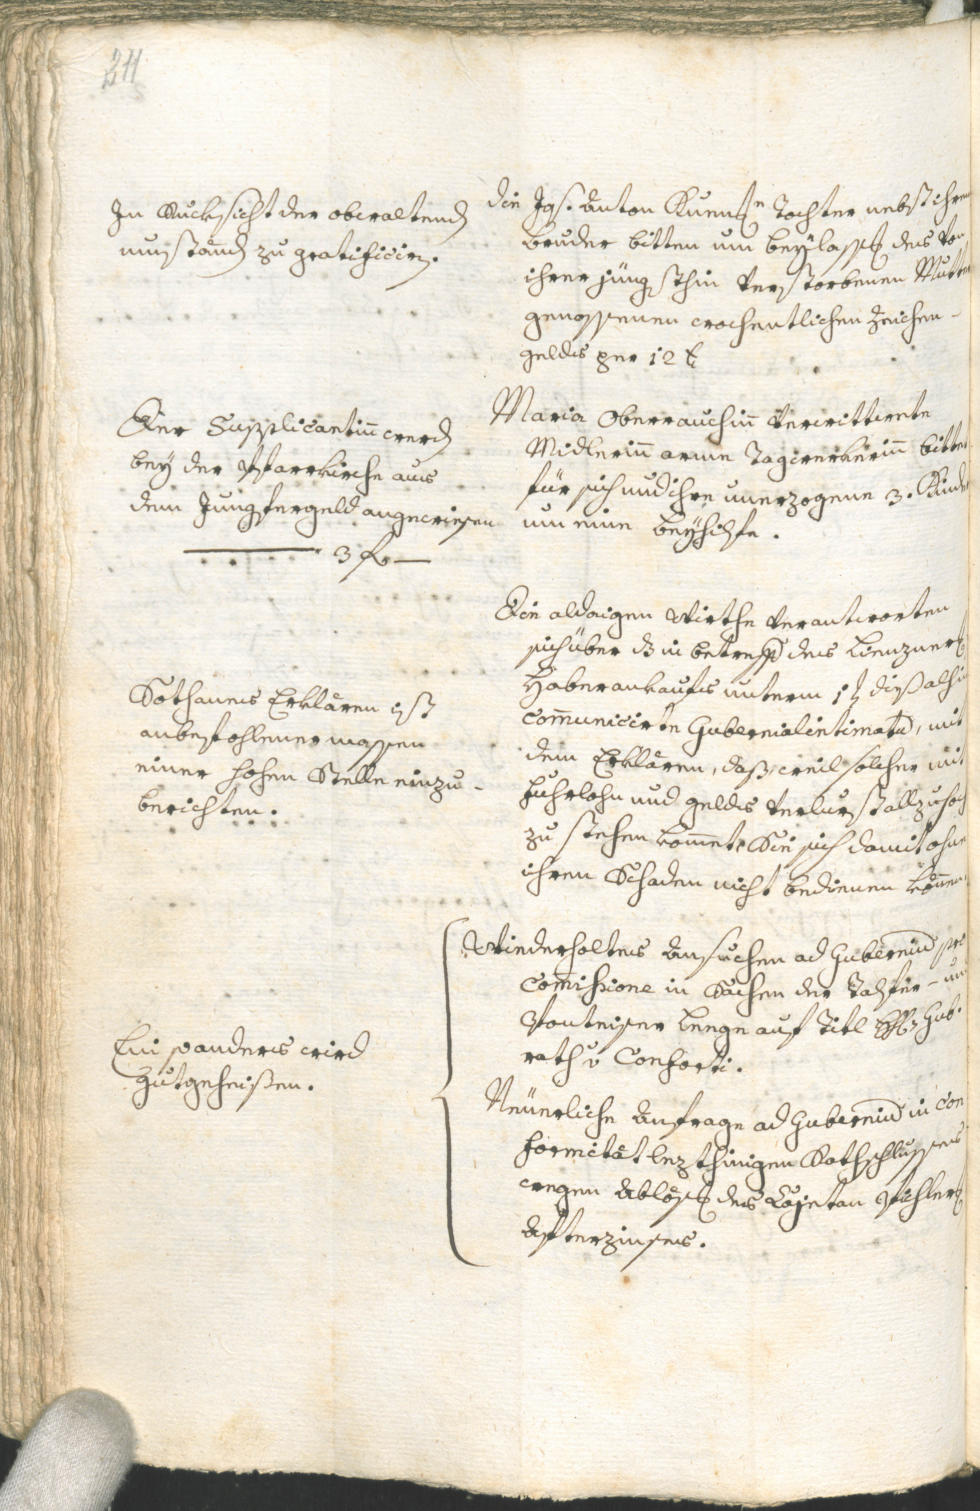 211
In Rucksicht der obwaltend
umständ zu gratificirn.
die Jgf. Anton Kuenz Tochter nebst ihrem
Bruder bitten um beylassg des von
ihrer jüngsthin verstorbenen Mutter
genossenen wochentlichen Zeichen-
geldes per 12 x
Der Supplicantin werd
bey der Pfarrkirche aus
dem Jungfergeld angewiesen
3 f —
Maria Oberrauchin verwittwete
Midlerin arme Tagwerkerin bittet
für sich und ihre unerzogene 3. Kinder
um eine Beyhilfe.
Sothannes Erklären ist
anbefohlenermassen
einer hohen Stelle einzu-
berichten.
Die aldaigen Wirthe verantworten
sich über d in betreff des Lienzner
Haberankaufs unterm diß alhier
comunicirte Gubernialintimatu, mit
dem Erklären, daß, weil solcher mit
Fuhrlohn und geldes verlurst allzuhoch
zu stehen komet, Sie sich damit ohne
ihren Schaden nicht bedienen könen.
Ein so anderes wird
gutgeheißen.
Wiederholtes Ansuchen ad Guberniu pro
Comissione in Sachen der Talfer- und
Leege auf Titl Gub.
rath v Conforti.
Neuerliche Anfrage ad Guberniu in Con
formität lezthinigen Rathschlusses
wegen Ablösg des Cajetan Pichler
Afterzinses.